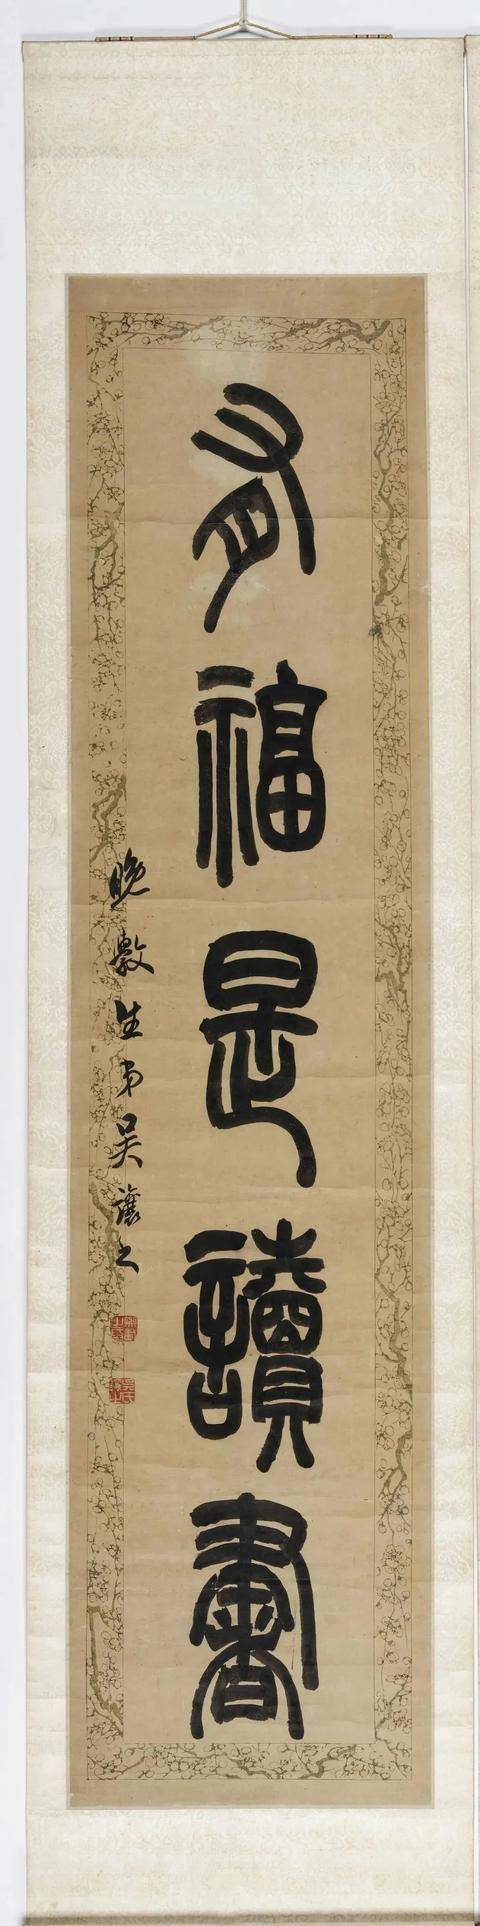 有福是讀書
晚學生弟吳讓之